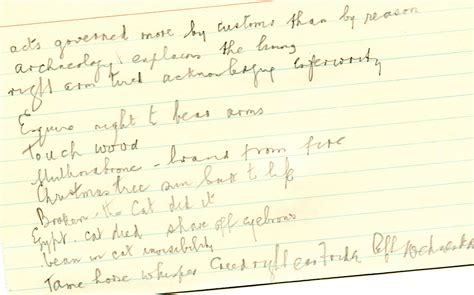 acts governed more by customs than by reason
archaeology explains the living
right arm tired acknowledging inferiority
Esquire right to bear arms
Touch wood
brand from fire
Christmas tree sun back to life
Broken - the Cat did it
Egypt. cat died shave off eyebrows
bean in cat invisibility
Tame horse whisper Creed right ear Friday left